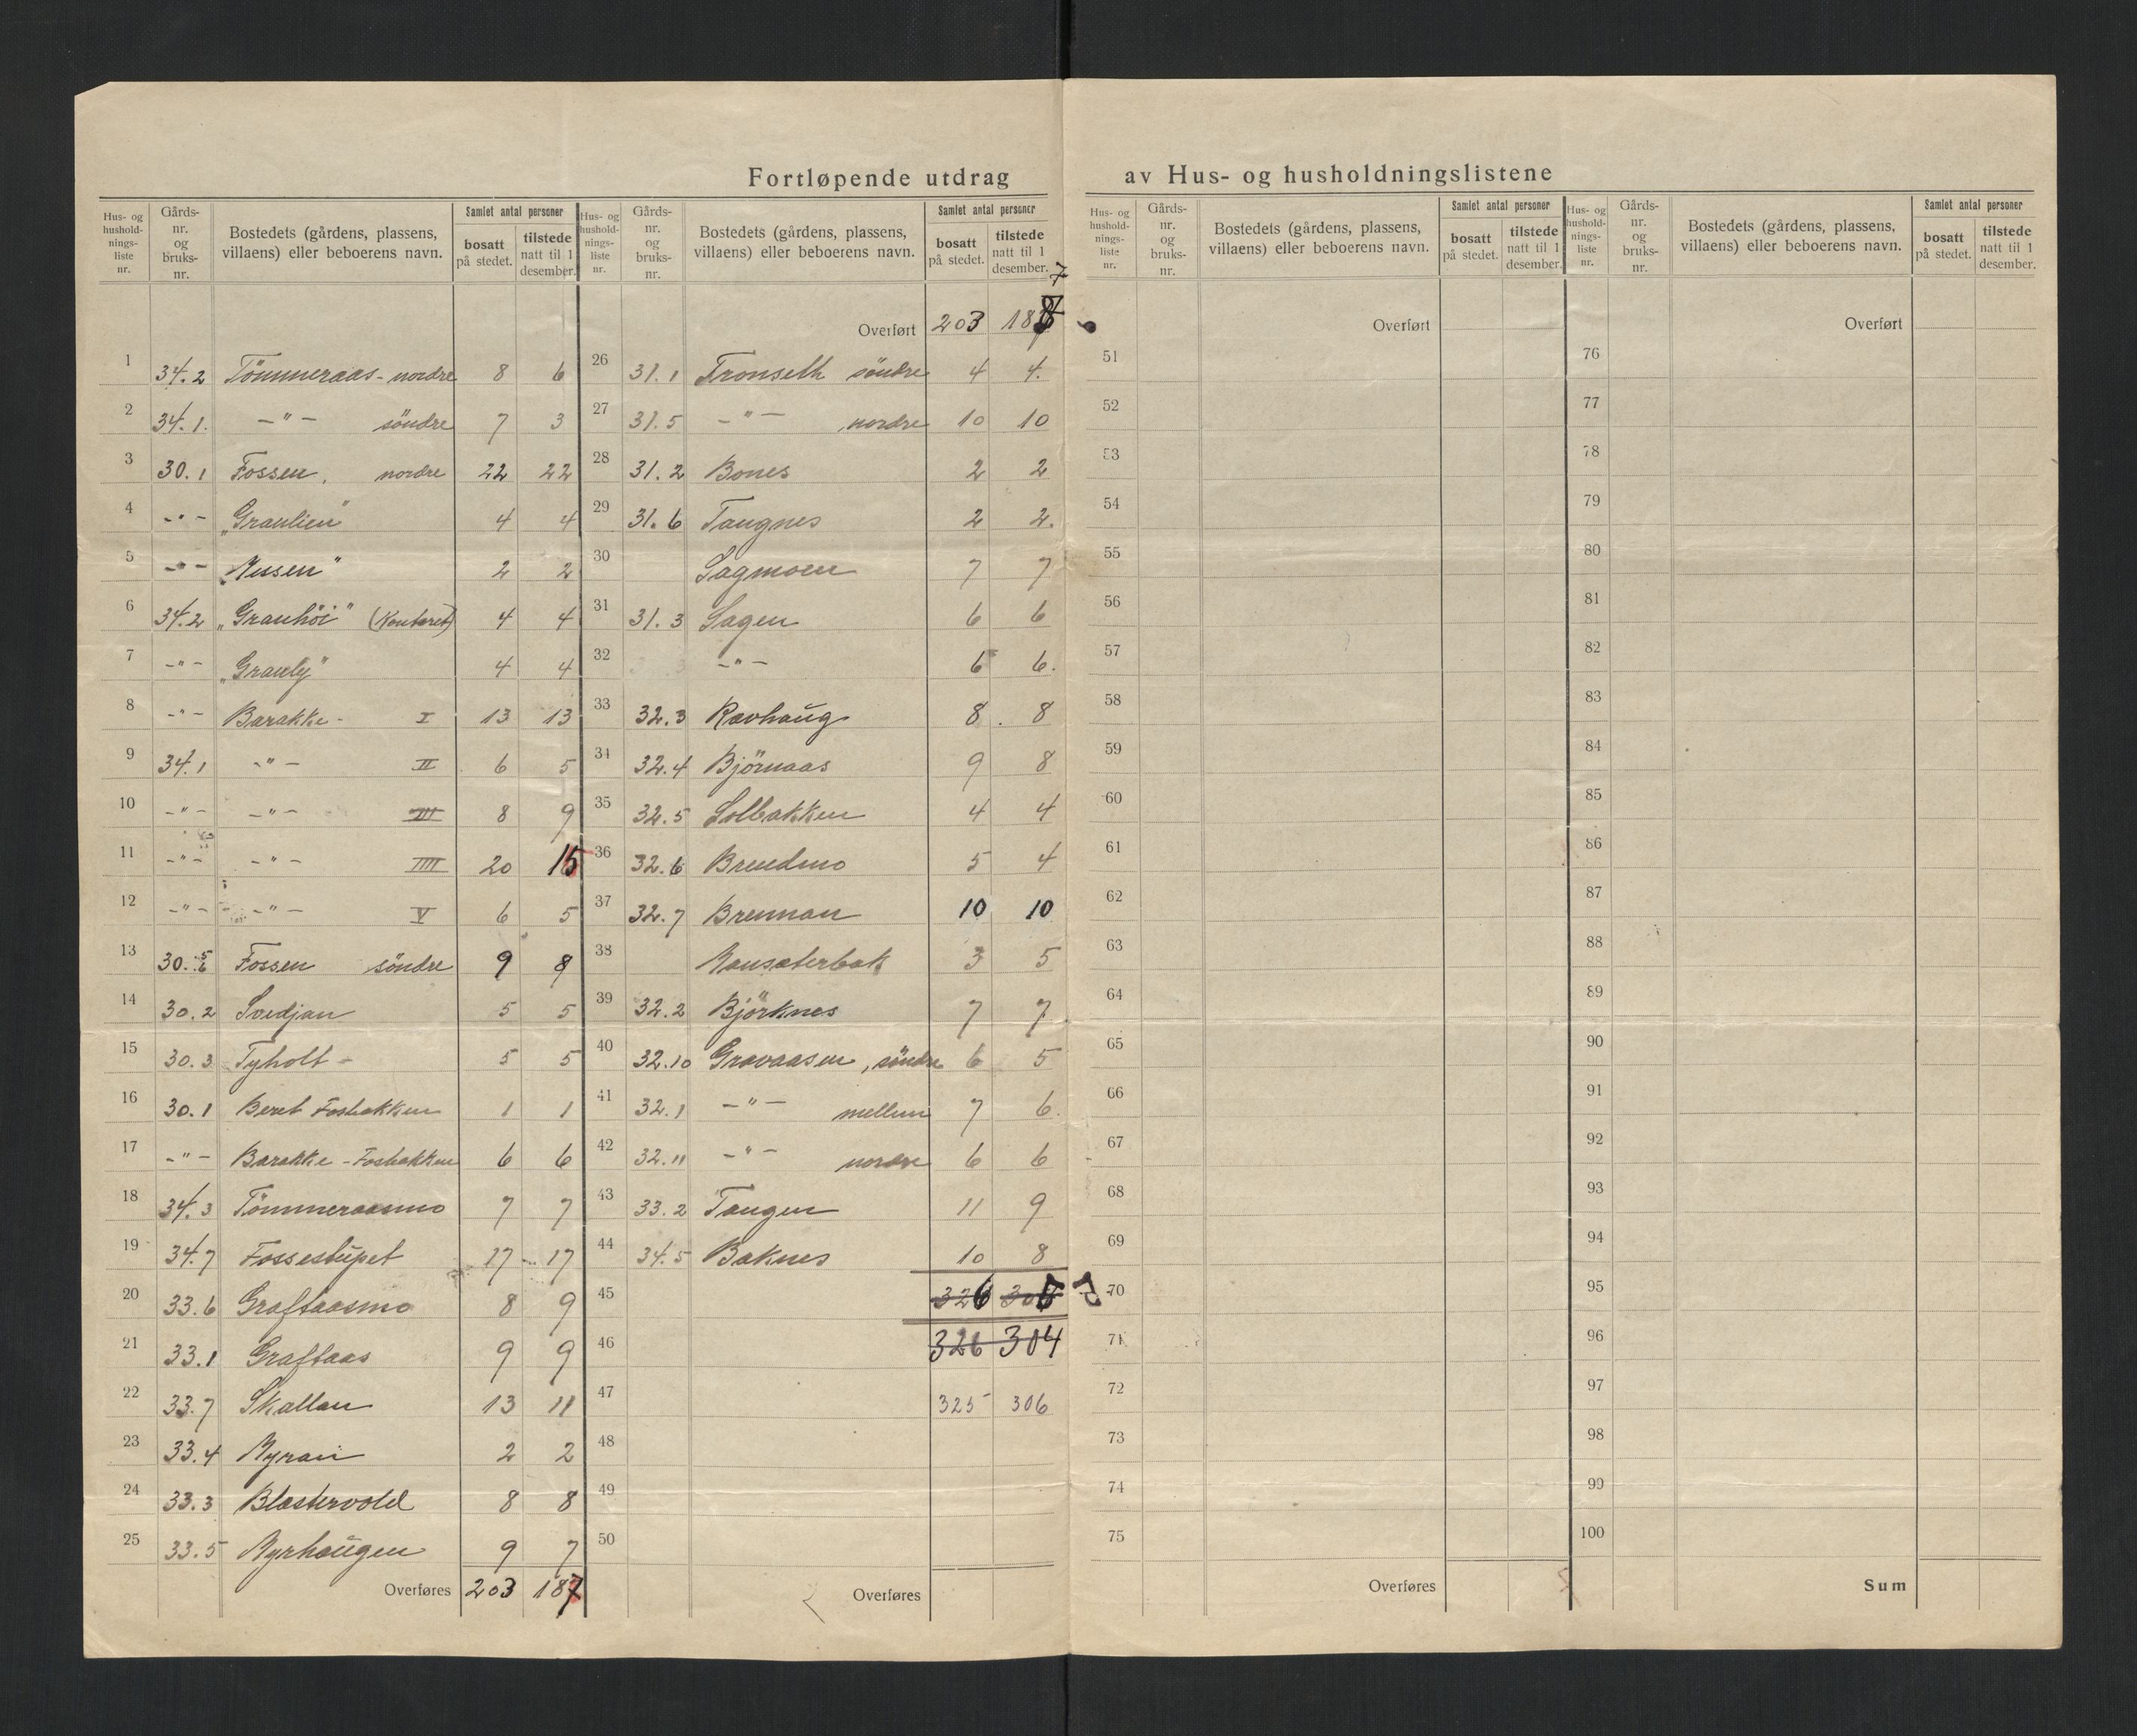 Fortløpende utdrag av Hus- og husholdningslistene
Hus- og husholdnings-liste nr. | Gårds-nr. og bruks-nr. | Bostedets (gårdens, plassens, villaens) eller beboerens navn. | Samlet antal personer | bosatt på stedet. | tilstede natt til 1 desember.
1 34.2 Tömmeraas - nordre 8 6
2 34.1. -"- söndre 7 3
3 30.1 Fossen, nordre 22 22
4 -"- „Granlien" 4 4
5 -"- „Nussen" 2 2
6 34.2 „Granhöi" (Kontoret) 4 4
7 -"- „Granly" 4 4
8 -"- Barakke - I 13 13
9 34.1 -"- II 6 5
10 -"- -"- III 8 9
11 -"- -"- IIII 20 15
12 -"- -"- V 6 5
13 30.5 6 Fossen söndre 9 8
14 30.2 Svedjan 5 5
15 30.3 Tyholt - 5 5
16 30.1 Beret Fosbakken 1 1
17 -"- Barakke - Fosbakken 6 6
18 34.3 Tömmeraasmo 7 7
19 34.7 Fossestupet 17 17
20 33.6 Graftaasmo 8 9
21 33.1 Graftaas 9 9
22 33.7 Skallan 13 11
23 33.4 Myran 2 2
24 33.3 Blæstervold 8 8
25 33.5 Myrhaugen 9 7
Overføres 203 187
Hus- og husholdnings-liste nr. | Gårds-nr. og bruks-nr. | Bostedets (gårdens, plassens, villaens) eller beboerens navn. | Samlet antal personer | bosatt på stedet. | tilstede natt til 1 desember.
7
Overført 203 18
26 31.1 Tronseth söndre 4 4.
27 31.5 -"- nordre 10 10
28 31.2 Bones 2 2
29 31.6 Tangnes 2 2.
30 Sagmoen 7 7
31 31.3 Sagen 6 6
32 -"- 6 6.
33 32.3 Ravhaug 8 8
34 32.4 Björnaas 9 8
35 32.5 Solbakken 4 4
36 32.6 Brendmo 5 4
37 32.7 Brennan 10 10
38 3 5
39 32.2 Björknes 7 7
40 32.10 Gravaasen, söndre 6 5
41 32.1 -"- mellem 7 6.
42 32.11 -"- nordre 6 6
43 33.2 Tangen 11 9
44 34.5 Baknes 10 8
45 326
46 326 304
47 325 306
48
49
50
Overføres
Hus- og husholdnings-liste nr. | Gårds-nr. og bruks-nr. | Bostedets (gårdens, plassens, villaens) eller beboerens navn. | Samlet antal personer | bosatt på stedet. | tilstede natt til 1 desember.
Overført
51
52
53
54
55
56
57
58
59
60
61
62
63
64
65
66
67
68
69
70
71
72
73
74
75
Overføres
Hus- og husholdnings-liste nr. | Gårds-nr. og bruks-nr. | Bostedets (gårdens, plassens, villaens) eller beboerens navn. | Samlet antal personer | bosatt på stedet. | tilstede natt til 1 desember.
Overført
76
77
78
79
80
81
82
83
84
85
86
87
88
89
90
91
92
93
94
95
96
97
98
99
100
Sum